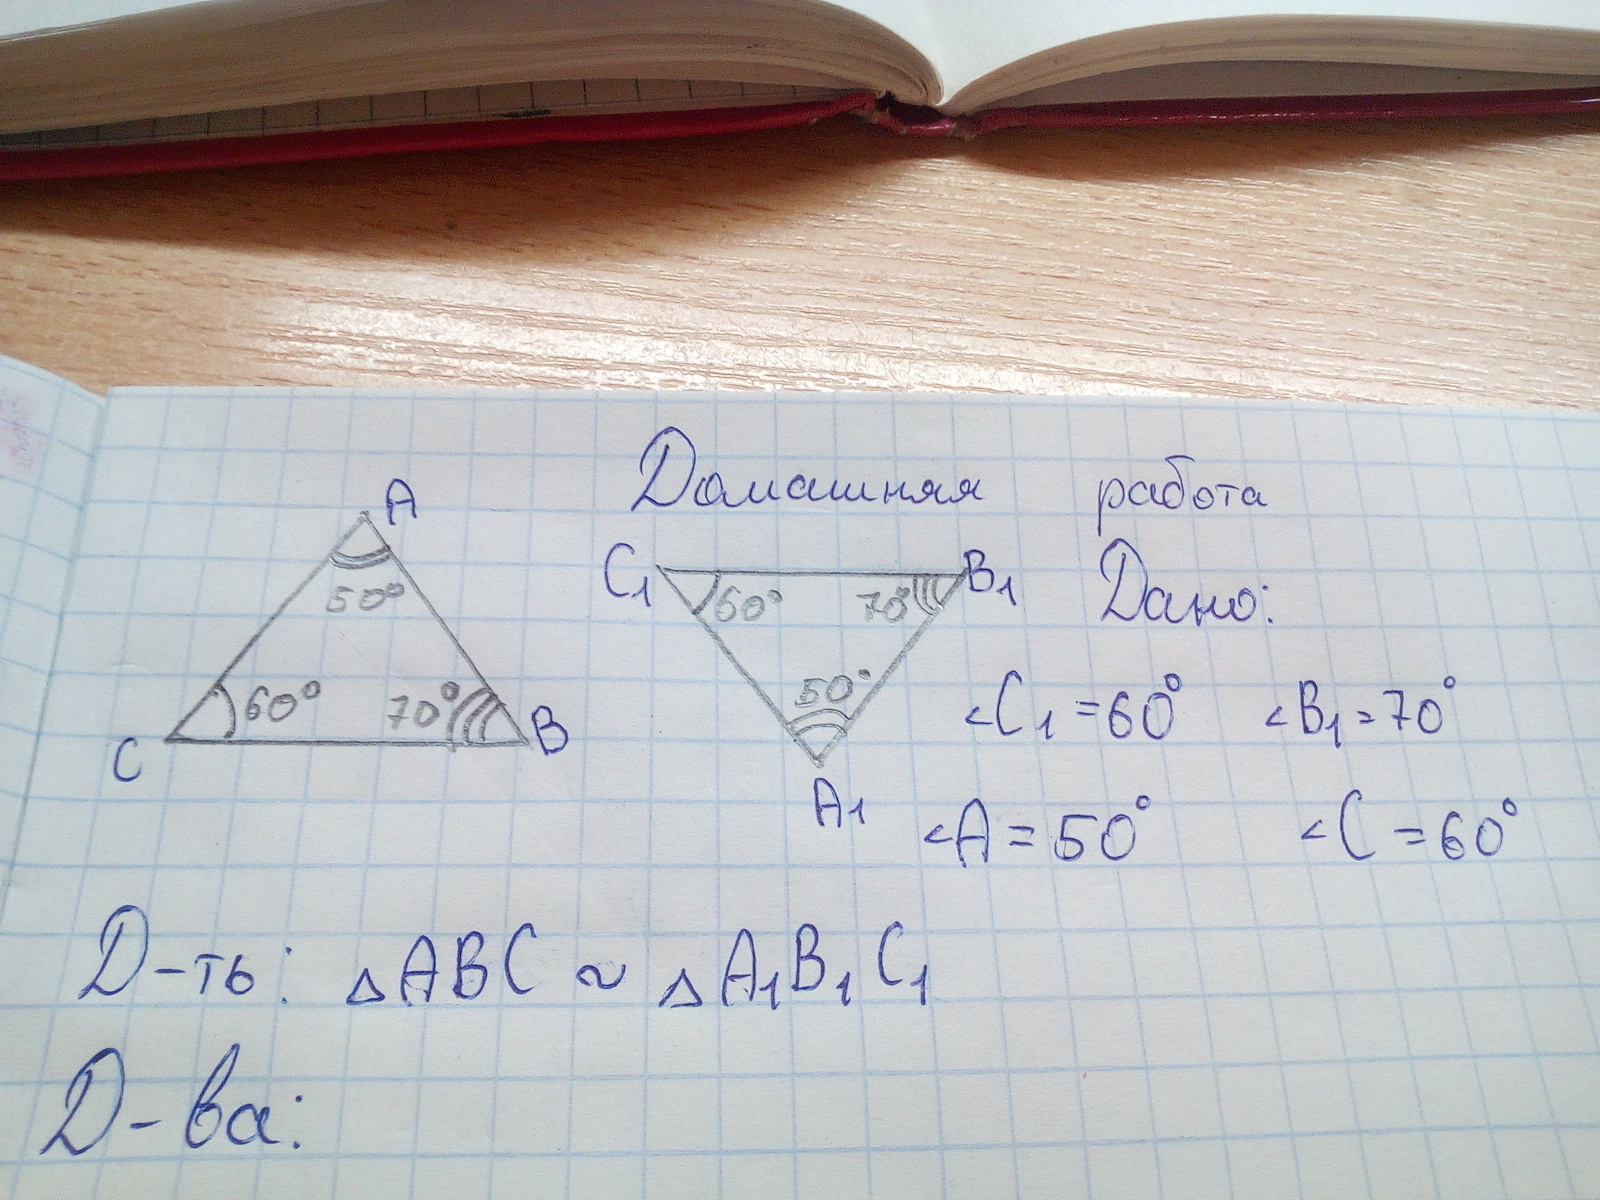 Домашняя работа
A
50°
60°
70°
C
B
C₁
60°
70°
B₁
50°
A₁
Дано:
<C₁=60° <B₁=70°
<A=50° <C=60°
Д-ть: △ABC ~ △A₁B₁C₁
Д-ва: